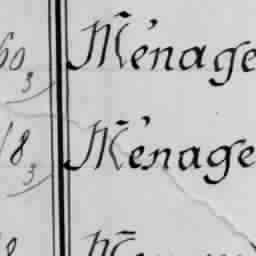 60 3 Ménage
18 3 Ménage